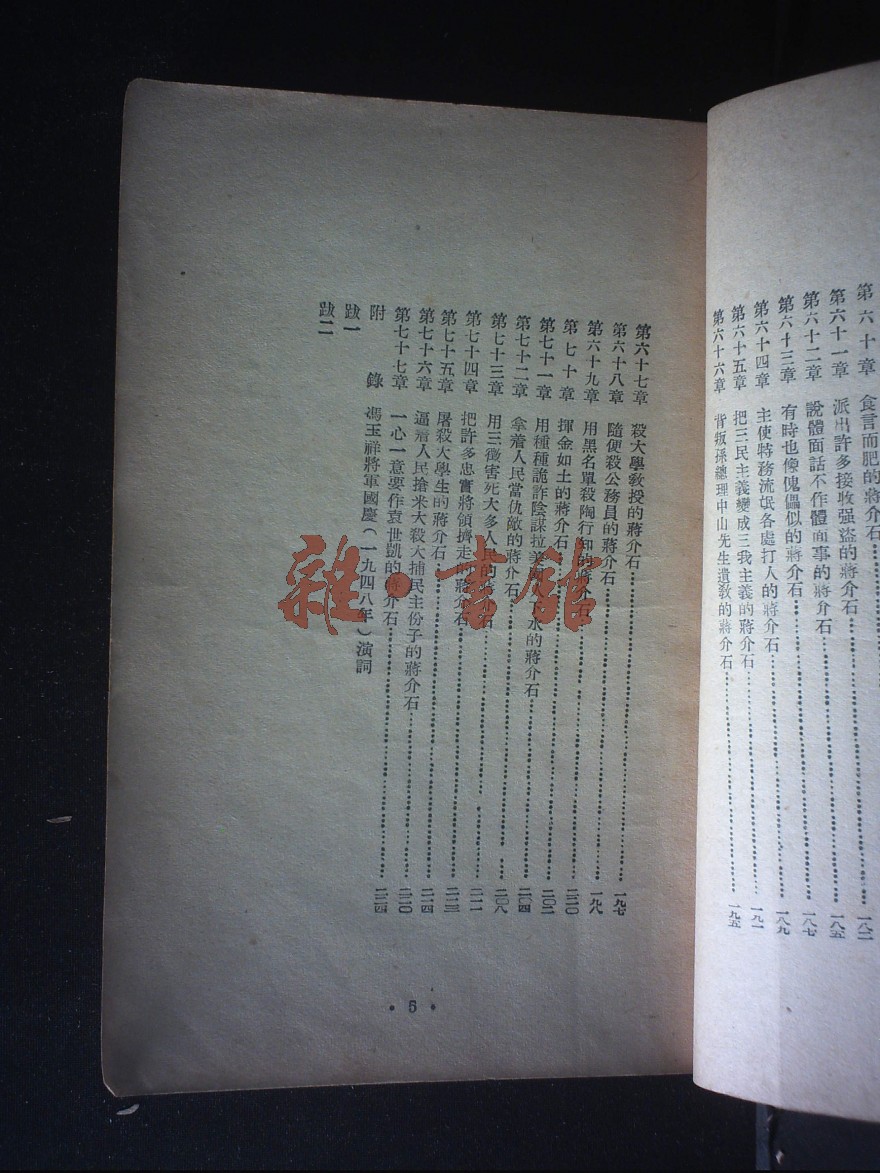 第六十章 食言而肥的蔣介石 一八二
第六十一章 派出許多接收强盜的蔣介石 一八五
第六十二章 說體面話不作體面事的蔣介石 一八七
第六十三章 有時也像傀儡似的蔣介石 一八九
第六十四章 主使特務流氓各處打人的蔣介石 一九一
第六十五章 把三民主義變成三我主義的蔣介石
第六十六章 背叛孫總理中山先生遺敎的蔣介石 一九五
第六十七章 殺大學敎授的蔣介石 一九七
第六十八章 隨便殺公務員的蔣介石 一九八
第六十九章 用黑名單殺陶行知的蔣介石
第七十章 揮金如土的蔣介石
第七十一章 用種種詭詐陰謀拉美國 水的蔣介石
第七十二章 拿着人民當仇敵的蔣介石 二〇四
第七十三章 用三徵害死大多人民的蔣介石 二〇八
第七十四章 把許多忠實將領擠走的蔣介石 二一一
第七十五章 屠殺大學生的蔣介石
第七十六章 逼着人民搶米大殺大捕民主份子的蔣介石 二一四
第七十七章 一心一意要作袁世凱的蔣介石 二二〇
附錄 馮玉祥將軍國慶(一九四八年)演詞 二二四
跋一
跋二
·5·
雜·書館